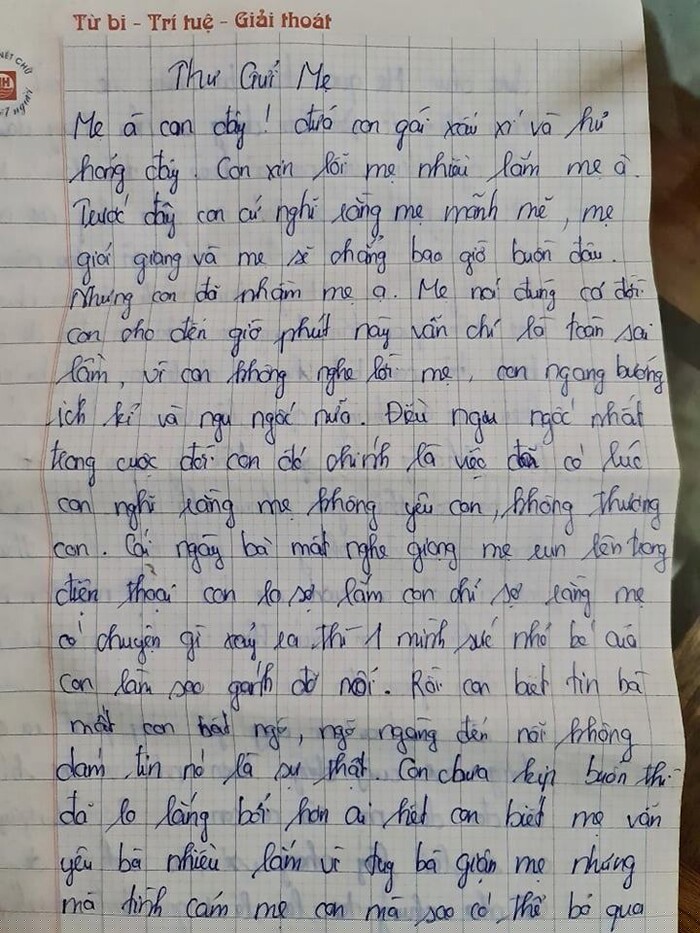 Từ bi - Trí tuệ - Giải thoát
NÉT CHỮ
NGƯỜI
Thư Gửi Mẹ
Mẹ à con đây ! đứa con gái xấu xí và hư
hỏng đây. Con xin lỗi mẹ nhiều lắm mẹ à.
Trước đây con cứ nghĩ rằng mẹ mãnh mẽ, mẹ
giỏi giang và mẹ sẽ chẳng bao giờ buồn đâu.
Nhưng con đã nhầm mẹ ạ. Mẹ nói đúng cả đời
con cho đến giờ phút này vẫn chỉ là toàn sai
lầm, vì con không nghe lời mẹ, con ngang bướng
ích kỉ và ngu ngốc nữa. Điều ngu ngốc nhất
trong cuộc đời con đó chính là việc đã có lúc
con nghĩ rằng mẹ không yêu con, không thương
con. Cái ngày bà mất nghe giọng mẹ run lên trong
điện thoại con lo sợ lắm con chỉ sợ rằng mẹ
có chuyện gì xảy ra thì 1 mình sức nhỏ bé của
con làm sao gánh đỡ nổi. Rồi con biết tin bà
mất con bất ngờ, ngỡ ngàng đến nỗi không
dám tin nó là sự thật. Con chưa kịp buồn thì
đã lo lắng bởi hơn ai hết con biết mẹ vẫn
yêu bà nhiều lắm vì dug bà giận mẹ nhưng
mà tình cảm mẹ con mà sao có thể bỏ qua